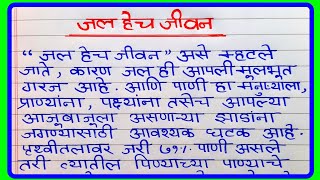 जल हेच जीवन
“ जल हेच जीवन” असे म्हटले
जाते, कारण जल ही आपली मूलभूत
गरज आहे. आणि पाणी हा मनुष्याला,
प्राण्यांना, पक्ष्यांना तसेच आपल्या
आजूबाजूला असणाऱ्या झाडांना
जगण्यासाठी आवश्यक घटक आहे.
पृथ्वीतलावर जरी ७१% पाणी असले
तरी त्यातील पिण्याच्या पाण्याचे